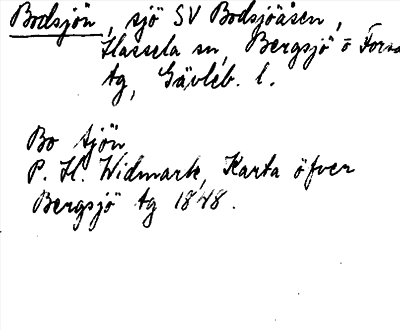 Bodsjön, sjö SV Bodsjöåsen,
Hassela sn, Bergsjö o Forsa
tg, Gävleb. l.
Bo tjön
P. H. Widmark, Karta öfver
Bergsjö tg 1848.